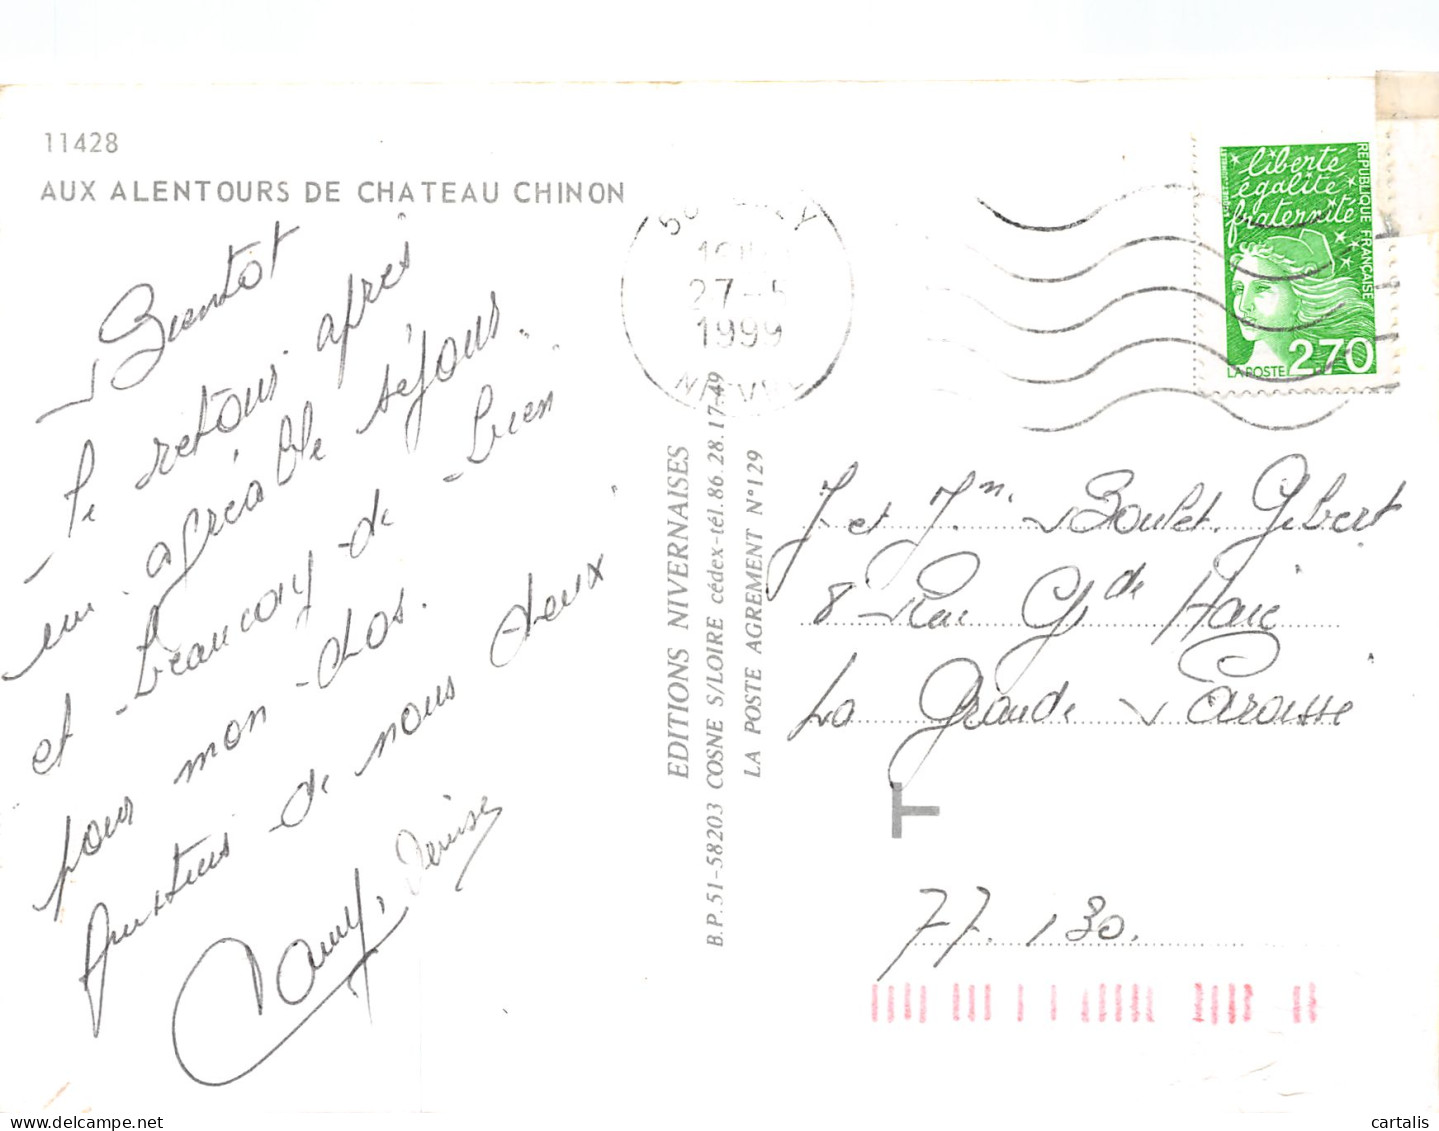 11428
AUX ALENTOURS DE CHATEAU CHINON
Bientot
le retour après
un agréable séjour.
et beaucoup de bien
pour mon dos.
de nous deux
Denise
EDITIONS NIVERNAISES
B.P. 51-58203 COSNE S/LOIRE cédex-tél. 86.28.17.49
LA POSTE AGREMENT N° 129
27-5
1999
NIEVRE
liberté
égalité
fraternité
REPUBLIQUE FRANCAISE
LA POSTE 2,70
J et Jm. Boulet Gilbert
8 Rue Gde Haie
La Grande Paroisse
T
77.130.
cartalis
delcampe.net